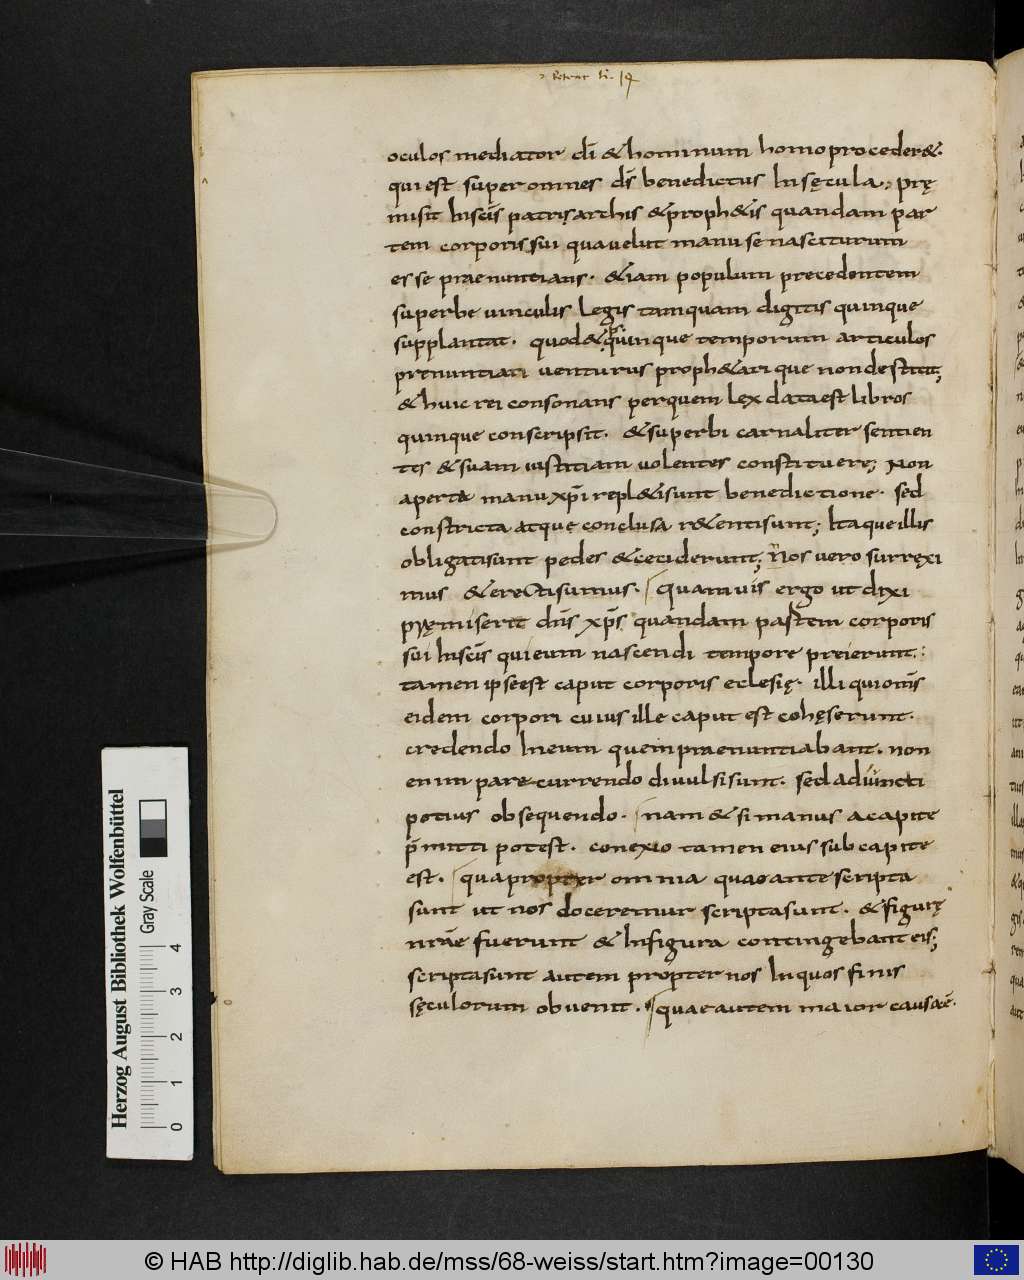 oculos mediator dī & hominum homo proceder&.
qui est super omnes ds̄ benedictus In sęcula; prę
misit In sc̄is patriarchis & proph&is quandam par
tem corporis sui qua velut manu se nasciturum
esse praenuntians. & iam populum precedentem
superbe vinculis legis tamquam digitis quinque
supplantat. quod & quinque temporum articulos
prenuntiari venturus proph&ari que non destitit;
& huic rei consonans per quem lex data est libros
quinque conscripsit. & superbi carnaliter sentien
tes & suam iustitiam volentes constituere; Non
aperta manu xp̄i repl&i sunt benedictione. sed
constricta atque conclusa r&enti sunt; Itaque illis
obligati sunt pedes & ceciderunt; Nos vero surręxi
mus & erecti sumus. quamvis ergo ut dixi
pręmiserit dn̄s xp̄s quandam partem corporis
sui In sc̄is qui eum nascendi tempore preierunt.
tamen ipse est caput corporis eclesię. illi qui om̄s
eidem corpori cuius ille caput est cohęserunt.
credendo In eum quem praenuntiabant. non
enim parecurrendo divulsi sunt. sed adiuncti
potius obsequendo. nam & si manus a capite
p̄mitti potest. conexio tamen eius sub capite
est. quapropter omnia quae ante scripta
sunt ut nos doceremur scripta sunt. & figurę
nr̄ae fuerunt & In figura contingebant eis;
scripta sunt autem propter nos In quos finis
sęculorum obvenit. quae autem maior causa ē.
Herzog August Bibliothek Wolfenbüttel
Gray Scale
0 1 2 3 4
© HAB http://diglib.hab.de/mss/68-weiss/start.htm?image=00130